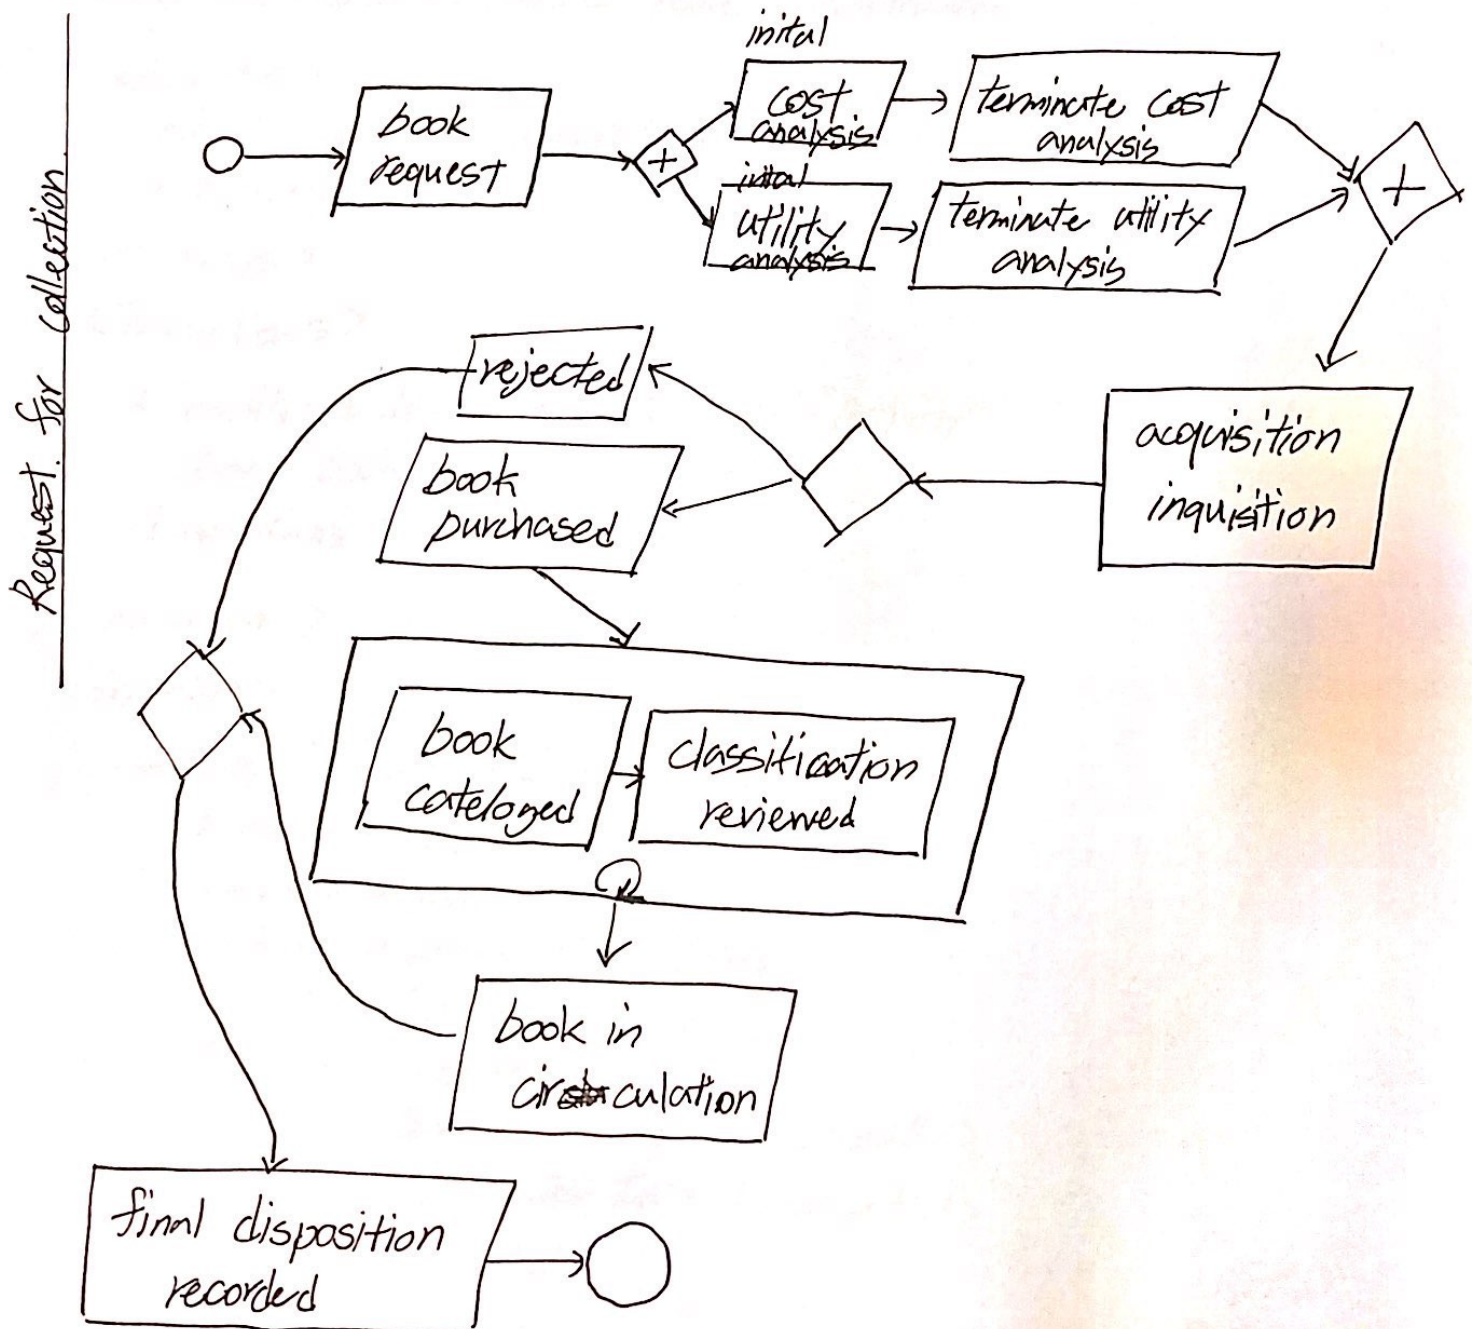 Request for Collection
book
request
+
inital
cost
analysis
inital
utility
analysis
terminate cost
analysis
terminate utility
analysis
+
acquisition
inquisition
rejected
book
purchased
book
cateloged
classification
reviewed
book in
circulation
final disposition
recorded